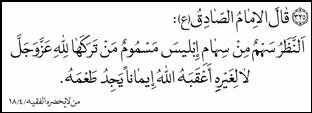 (٣٢٥) قالَ الإمامُ الصّادِقُ(ع):
اَلنَّظَرُ سَهْمٌ مِنْ سِهامِ إبْليسَ مَسْمُومٌ مَنْ تَرَكَها لِلّهِ عَزَّوَجَلَّ
لا لِغَيْرِهِ أَعْقَبَهُ اللهُ إيماناً يَجِدُ طَعْمَهُ.
من لايحضره الفقيه/١٨/٤